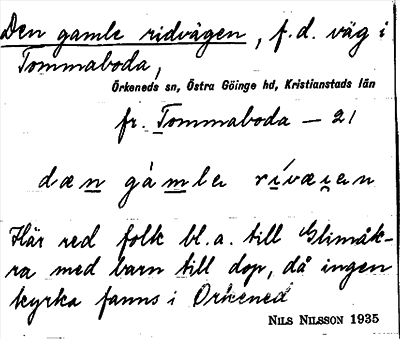 Den gamle ridvägen, f.d. väg i
Tommaboda,
Örkeneds sn, Östra Göinge hd, Kristianstads län
fr. Tommaboda – 21
dæn gàmla rívæi̯an
Här red folk bl.a. till Glimåk-
ra med barn till dop, då ingen
kyrka fanns i Örkened
NILS NILSSON 1935